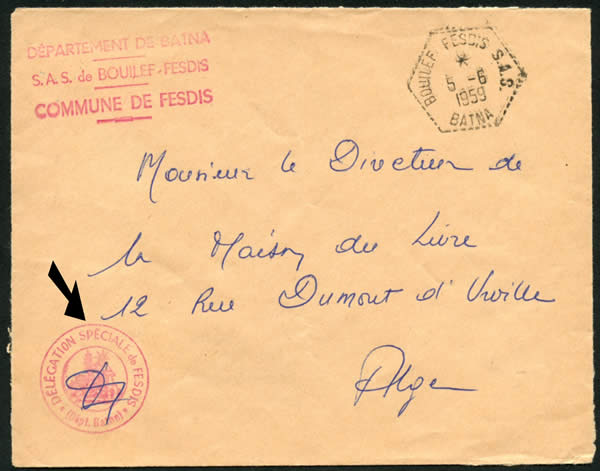 DÉPARTEMENT DE BATNA
S.A.S. de BOUILEF-FESDIS
COMMUNE DE FESDIS
BOUILEF FESDIS S.A.S.
5 -6
1959
BATNA
Monsieur le Directeur de
la Maison du Livre
12 Rue Dumont d'Urville
Alger
DÉLÉGATION SPÉCIALE de FESDIS
(Dépt. Batna)